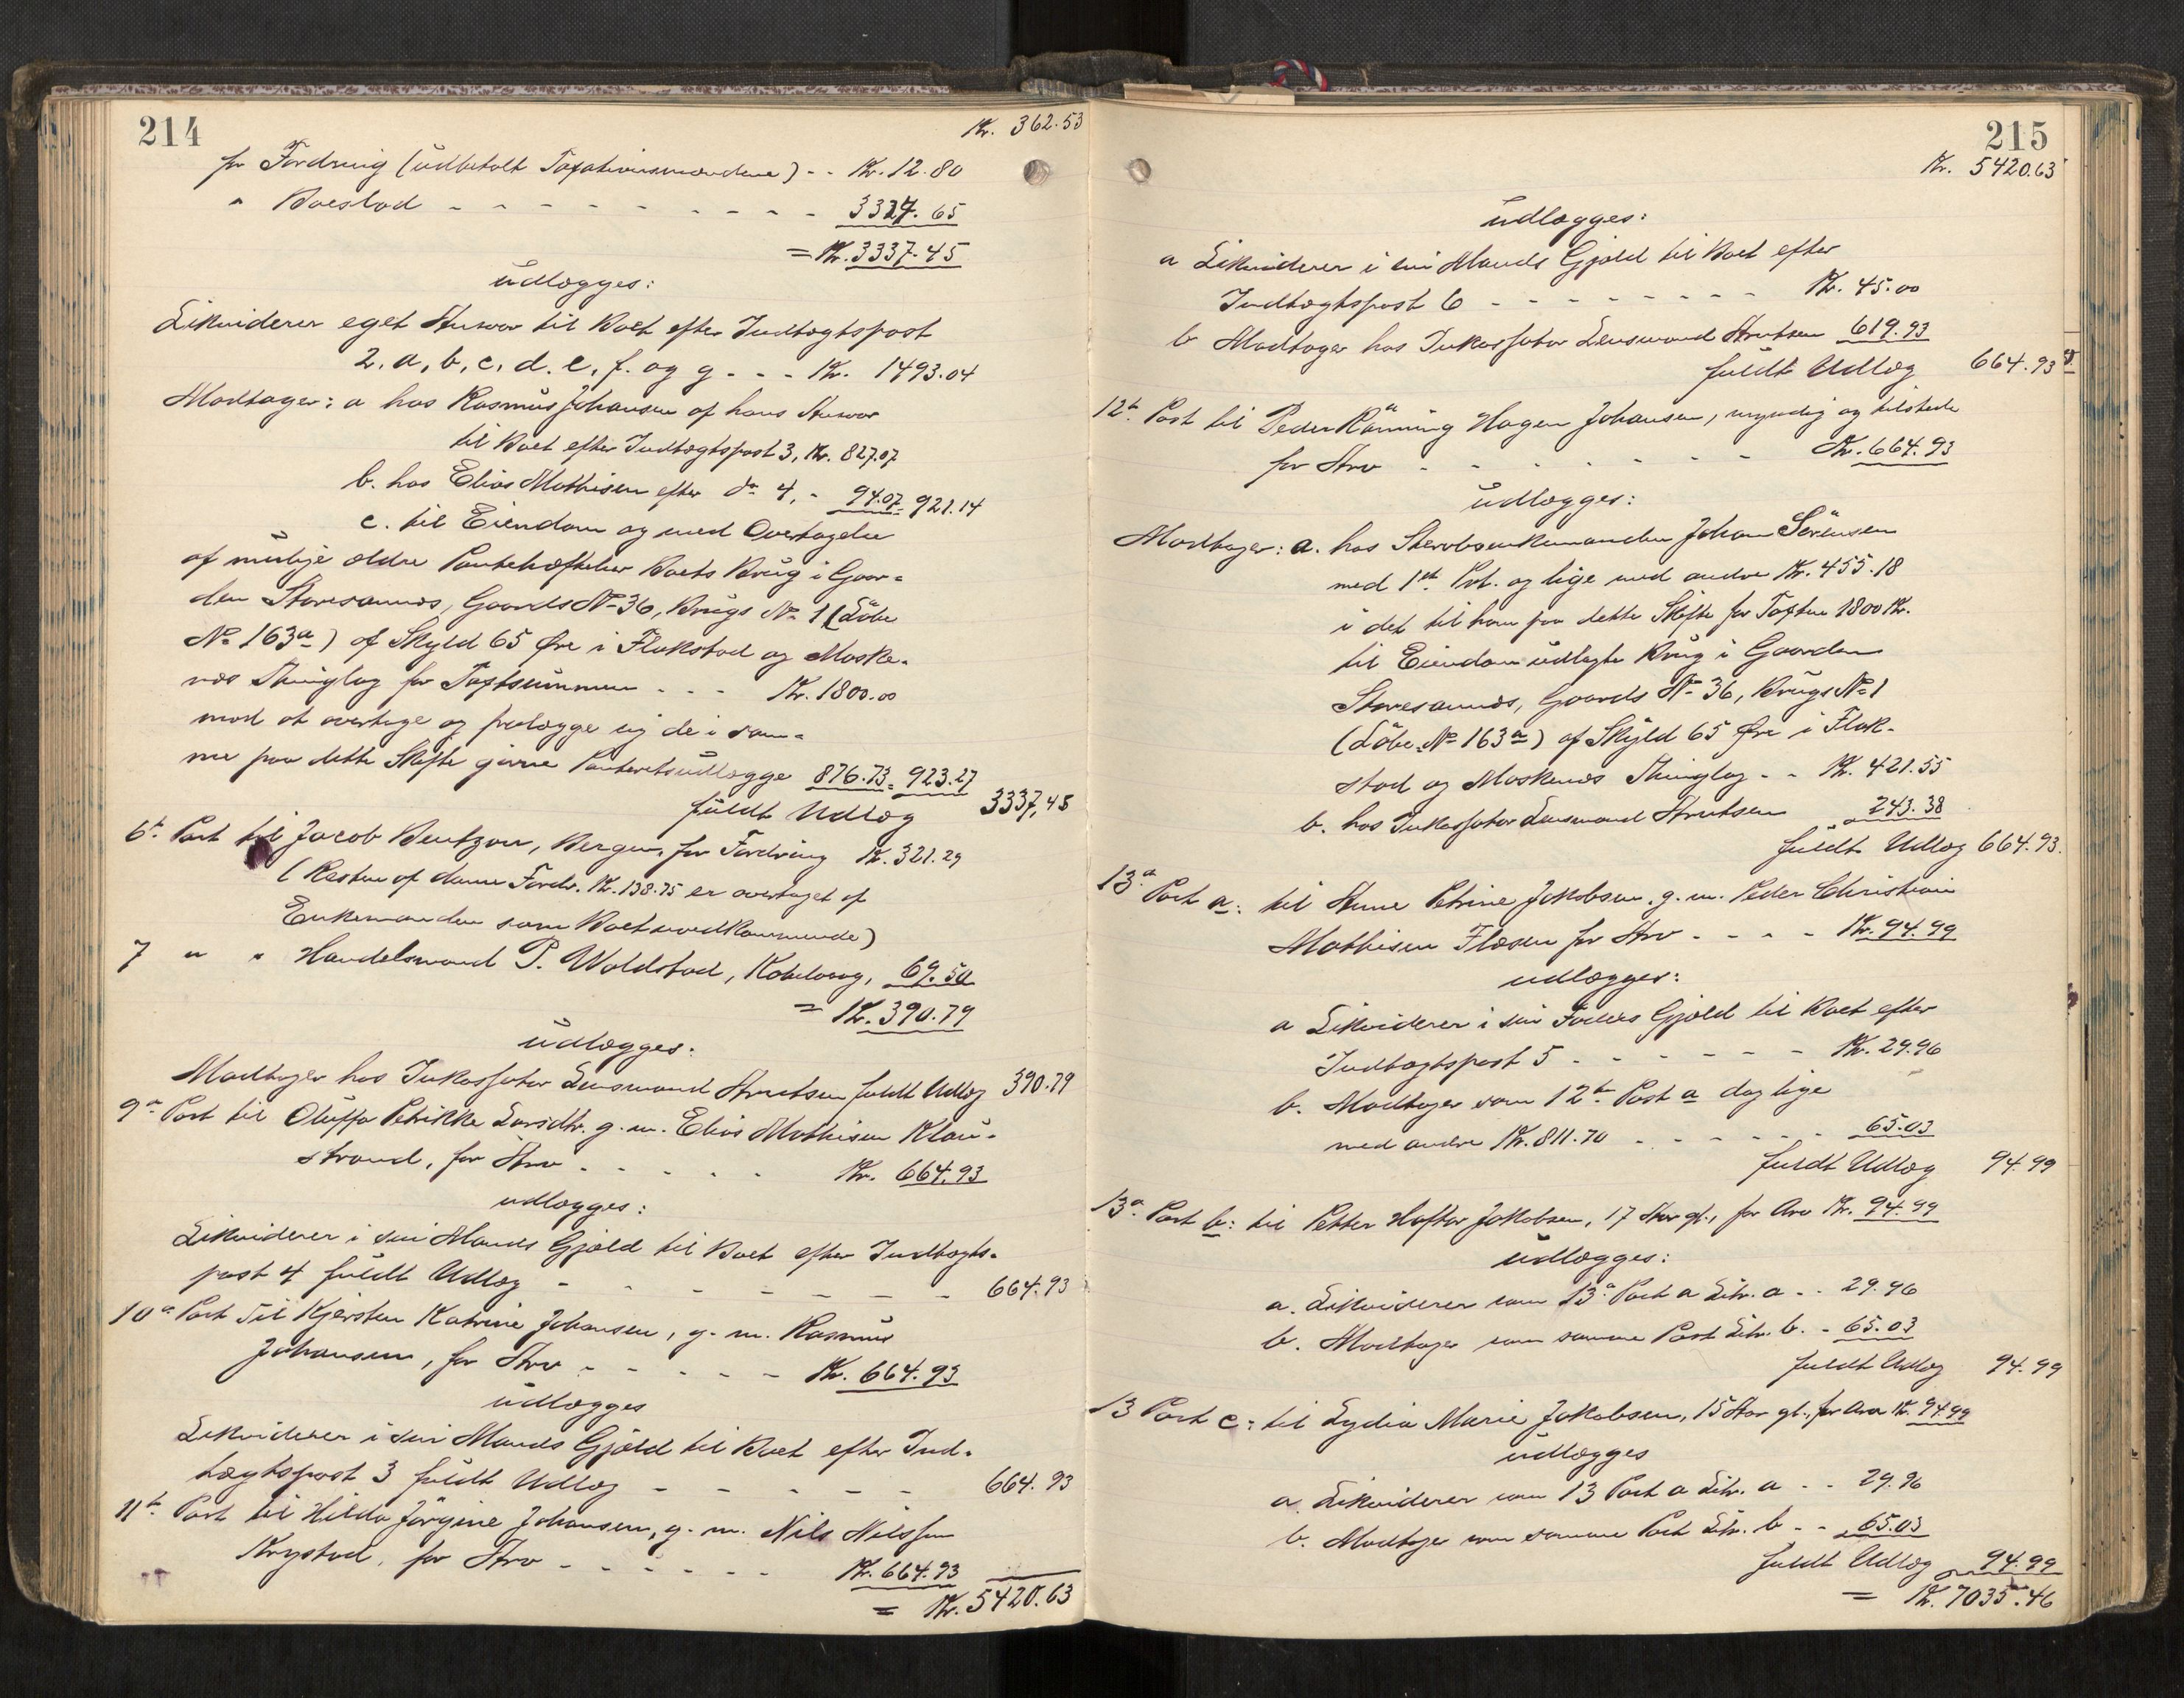 214
Kr. 362.53
for Fordring (udbetalt Taxationsmændene) - - Kr. 12.80
" Boeslod - - - - - - - - - - 3324.65
= Kr. 3337.45
udlægges:
Likviderer eget Ansvar til Boet efter Indtægtspost
2, a, b, c, d. e, f. og g - - - Kr. 1493.04
Modtager: a hos Rasmus Johansen af hans Ansvar
til Boet efter Indtægtspost 3, Kr. 827.07
b. hos Elias Mathisen efter do 4, - 94.07 = 921.14
c. til Eiendom og med Overtagelse
af mulige ældre Pantehæftelser Boets Brug i Gaar-
den Storesannes, Gaards No 36, Brugs No 1 (Löbe
No 163a) af Skyld 65 Øre i Flakstad og Moske-
næs Thinglag for Taxtsummen - - - Kr. 1800.00
mod at overtage og frelægge sig de i sam-
me paa dette Skifte givne Panteretsudlægge 876.73 = 923.27
fuldt Udlæg 3337,45
6te Post til Jacob Bentzon, Bergen, for Fordring Kr. 321.29
(Resten af denne Fordr. Kr. 138.75 er overtaget af
Enkemanden som Boet uvedkommende)
7 " " Handelsmand P. Woldstad, Kabelvaag, 69.50
= Kr. 390.79
udlægges:
Modtager hos Inkassator Lensmand Knutsen fuldt Udlæg 390.79
9de Post til Oluffa Petrikke Larsdtr. g. m. Elias Mathisen Klau-
strand, for Arv - - - - - Kr. 664.93
udlægges:
Likviderer i sin Mands Gjæld til Boet efter Indtægts-
post 4 fuldt Udlæg - - - - - - - 664.93
10de Post til Kjersten Katrine Johansen, g. m. Rasmus
Johansen, for Arv - - - - - Kr. 664.93
udlægges
Likviderer i sin Mands Gjæld til Boet efter Ind-
tægtspost 3 fuldt Udlæg - - - - - 664.93
11te Post til Hilda Jörgine Johansen, g. m. Nils Nilssen
Krystad, for Arv - - - - - - Kr. 664.93
= Kr. 5420.63
215
Kr. 5420.63
udlægges:
a Likviderer i sin Mands Gjæld til Boet efter
Indtægtspost 6 - - - - - - - - - Kr. 45.00
b Modtager hos Inkassator Lensmand Knutsen 619.93
fuldt Udlæg 664.93
12te Post til Peder Rånning Hagen Johansen, myndig og tilstede
for Arv - - - - - - - Kr. 664.93
udlægges:
Modtager: a. hos Stervboenkemanden Johan Sörensen
med 1st Prt. og lige med andre Kr. 455.18
i det til ham paa dette Skifte for Taxten 1800 Kr.
til Eiendom udlagte Brug i Gaarden
Storesannes, Gaards No 36, Brugs No 1
(Löbe-No 163a) af Skyld 65 Øre i Flak-
stad og Moskenæs Thinglag - - Kr. 421.55
b. hos Inkassator Lensmand Knutsen 243.38
fuldt Udlæg 664.93.
13de Post a: til Anne Petrine Jakobsen, g. m. Peder Christian
Mathisen Flæsen for Arv - - - - Kr. 94.99
udlægges:
a Likviderer i sin Faders Gjæld til Boet efter
Indtægtspost 5 - - - - - - - Kr. 29.96
b. Modtager som 12te Post a dog lige
med andre Kr. 811.70 - - - - - - 65.03
fuldt Udlæg 94.99
13de Post b: til Petter Hoftar Jakobsen, 17 Aar gl., for Arv Kr. 94.99
udlægges:
a. Likviderer som 13de Post a Litr. a - - 29.96
b. Modtager som samme Post Litr. b. - 65.03
fuldt Udlæg 94.99
13 Post c: til Lydia Marie Jakobsen, 15 Aar gl., for Arv Kr. 94.99
udlægges
a Likviderer som 13 Post a Litr. a - - 29.96
b. Modtager som samme Post Litr. b - - 65.03
fuldt Udlæg 94.99
= Kr. 7035.46